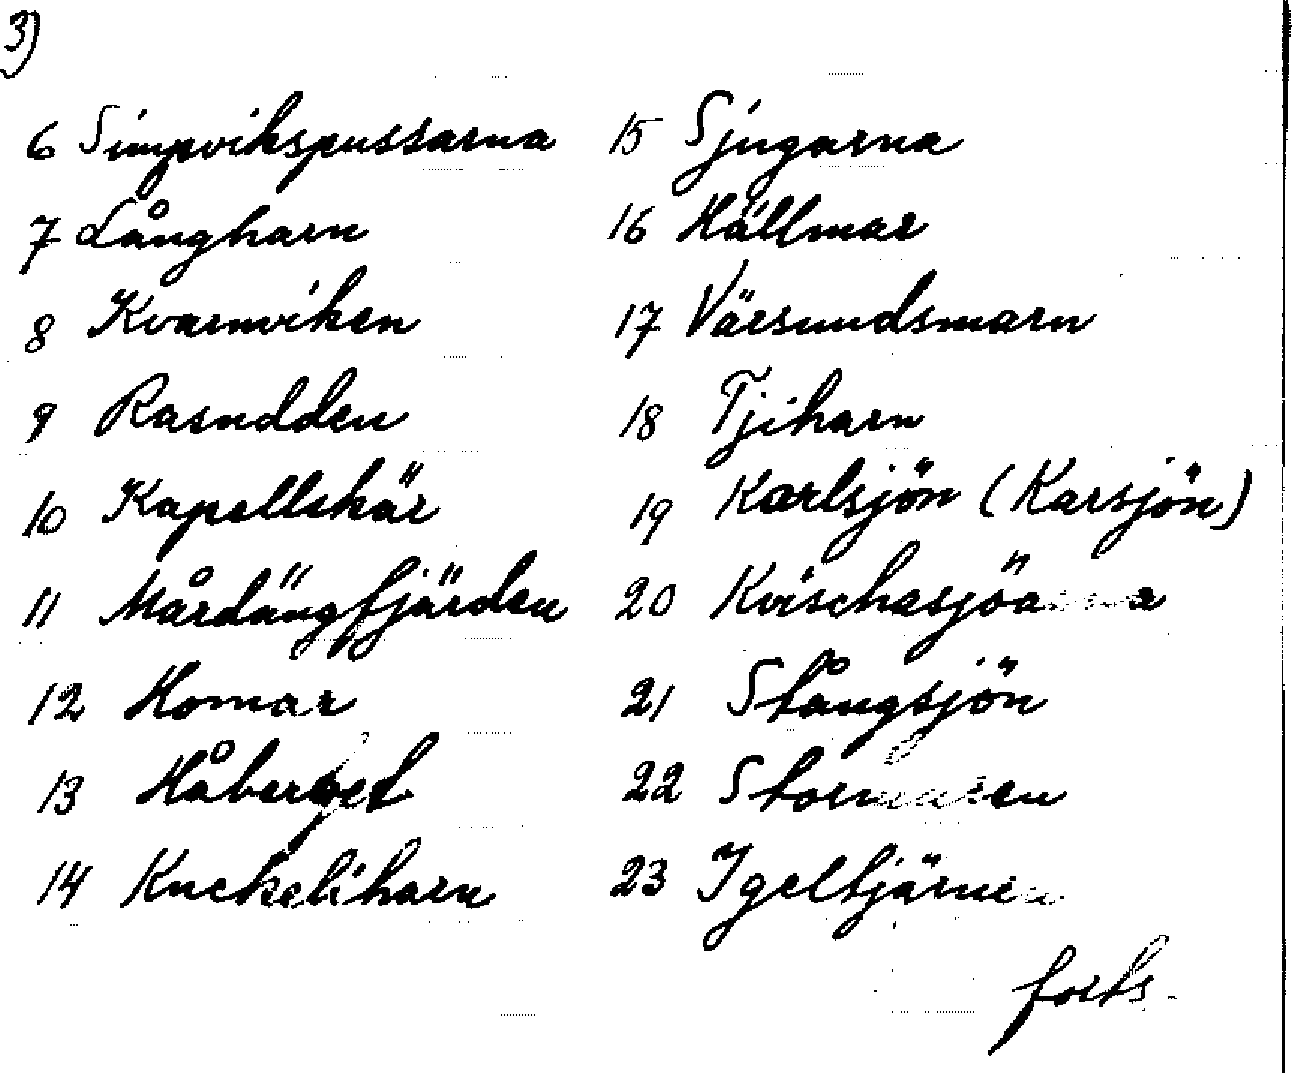 3)
6 Simpvikspussarna
7 Långharn
8 Kvarnviken
9 Rasudden
10 Kapellskär
11 Mårdängfjärden
12 Homar
13 Håberget
14 Knekeliharn
15 Sjugarna
16 Hällmar
17 Värsundsmarn
18 Tjiharn
19 Karlsjön (Karsjön)
20
21 Stångsjön
22
23 Igeltjärnen
forts.